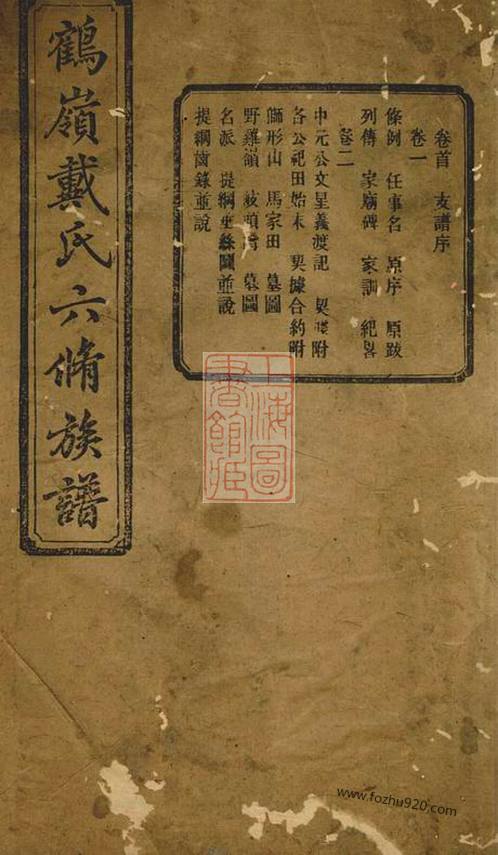 卷首 支譜序
卷一
條例 任事名 原序 原跋
列傳 家廟碑 家訓 紀畧
卷二
中元公文星義渡記 契據附
各公祀田始末 契據合約附
獅形山 馬家田 墓圖
野雞嶺 墓圖
名派 提綱垂絲圖並說
提綱齒錄並說
鶴嶺戴氏六脩族譜
上海圖
書館藏
www.fozhu920.com